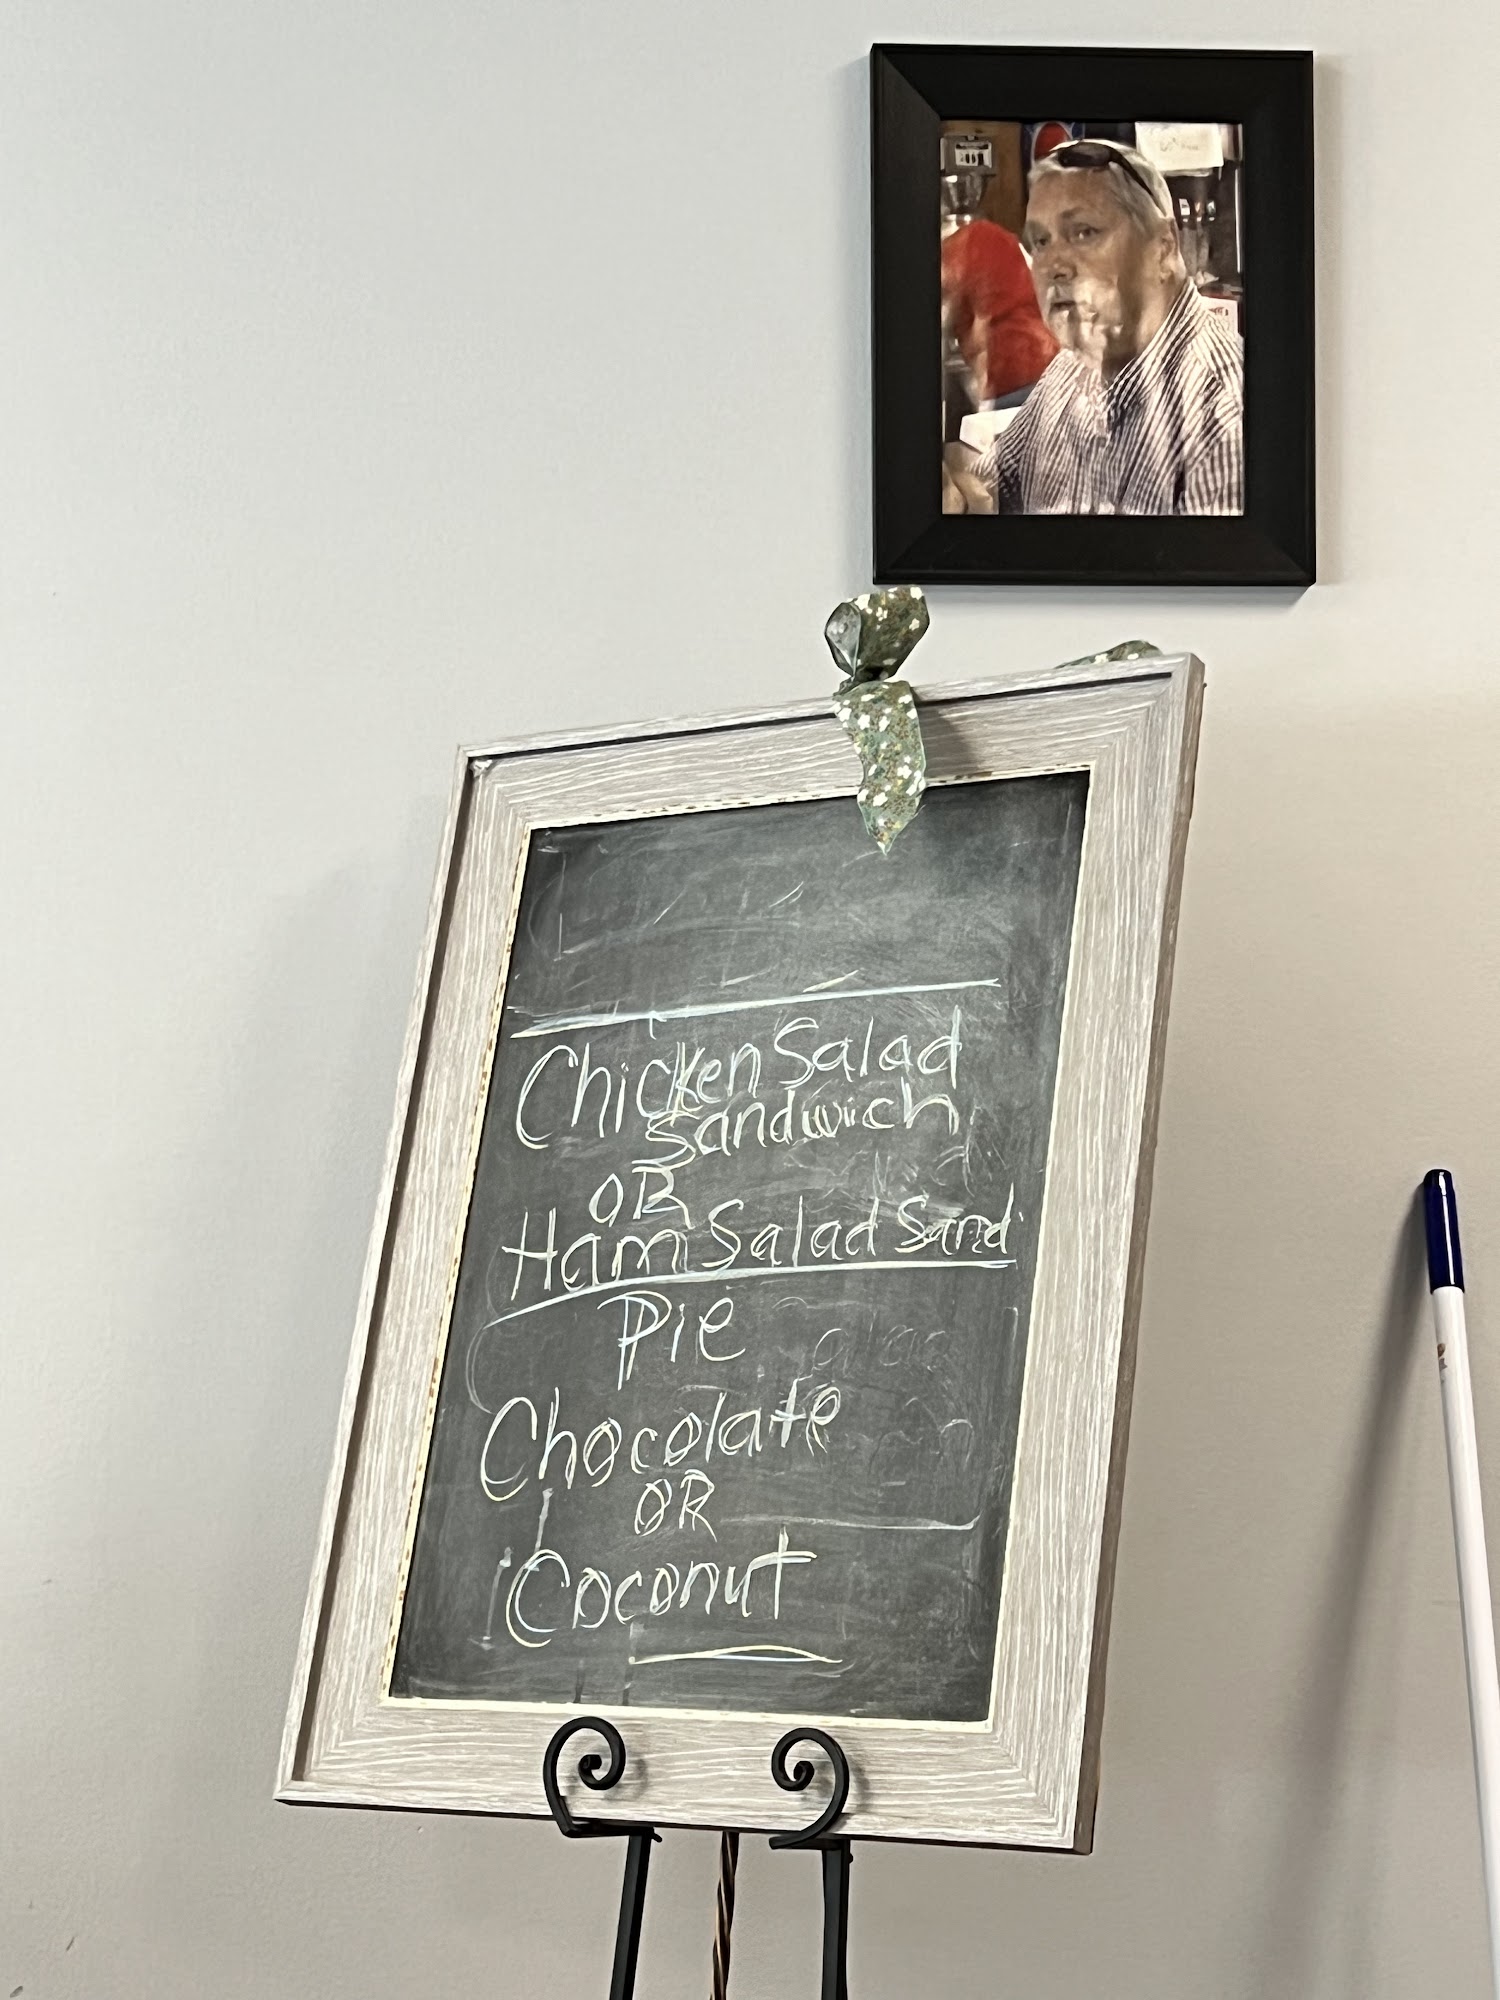 Chicken Salad
Sandwich
OR
Ham Salad Sand
Pie
Chocolate
OR
Coconut